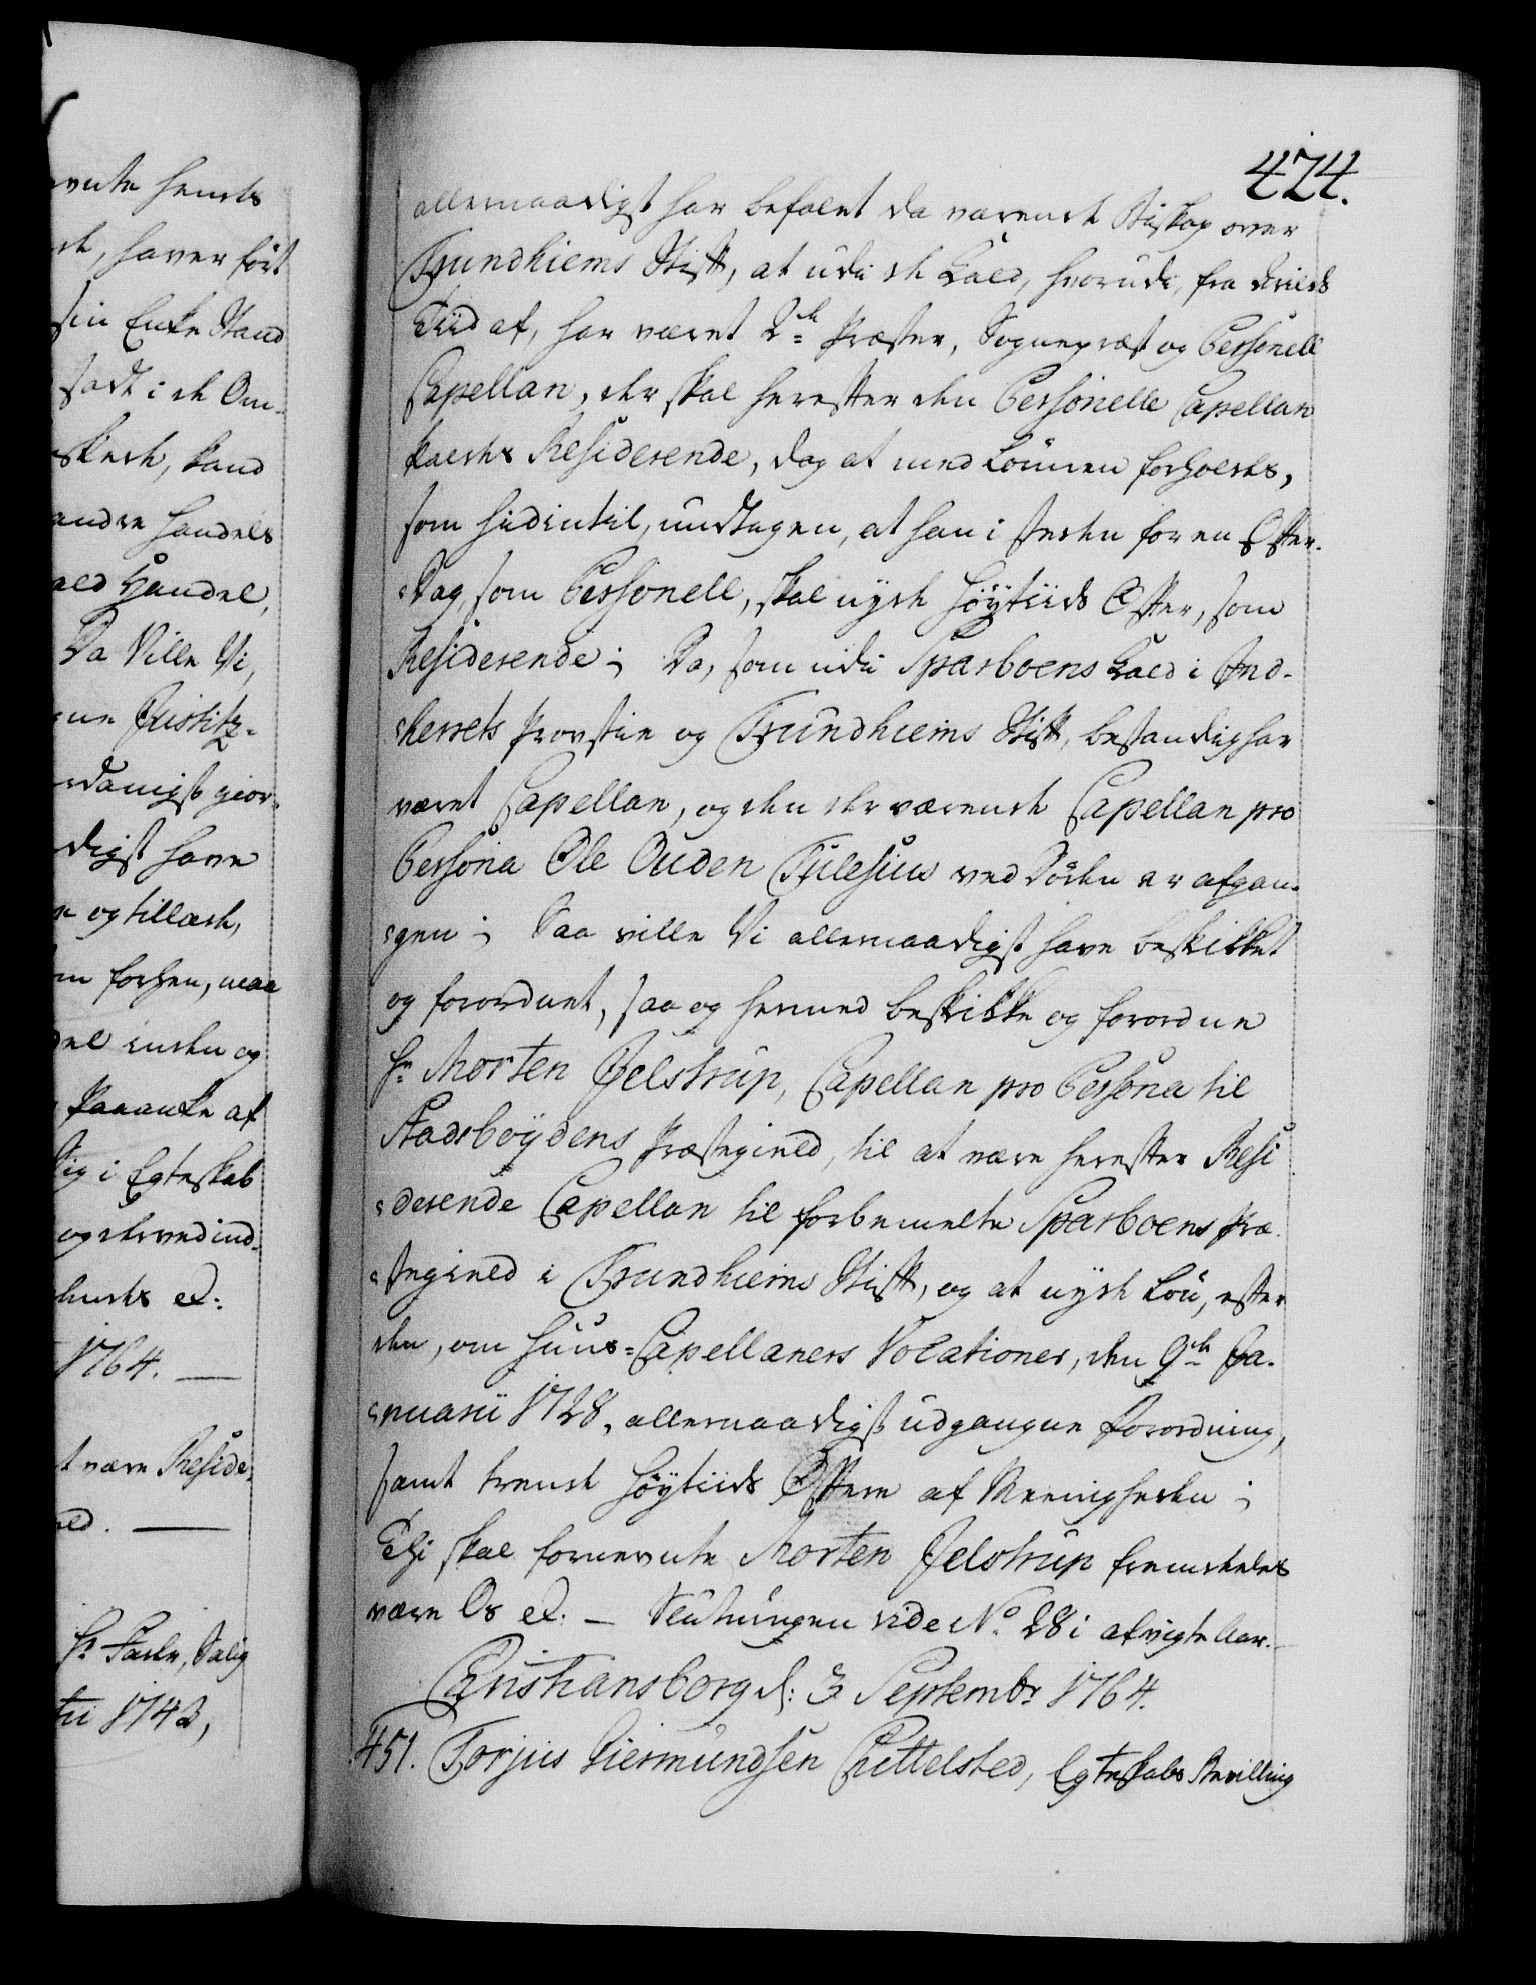 424.
allernaadigst har befalet da værende Biskop over
Trundhiems Stift, at udi de Kald, hvorudi, fra Arilds
Tiid af, har været 2de Præster, Sognepræst og Personell
Capellan, der skal herefter den Personelle Capellan
kaldes Residerende, dog at med Lønnen forholdes,
som hidindtil, undtagen, at han i steden for en Offer-
Dag, som Personell, skal nyde Høytiids Offer, som
Residerende; Da, som udi Sparboens Kald i Ind-
herrets Provstie og Trundhiems Stift, bestandig har
været Capellan, og den der værende Capellan pro
Persona Ole Ouden Tulesius ved Døden er afgan-
gen; Saa ville Vi allernaadigst have beskikket
og forordnet, saa og hermed beskikke og forordne
Hr. Morten Jelstrup, Capellan pro Persona til
Stadsboydens Præstegield, til at være herefter Resi
derende Capellan til forbemelte Sparboens Præ-
stegield i Trundhiems Stift, og at nyde Løn, efter
den, om Huus-Capellaners Vocationer, den 9de Ja-
nuarii 1728, allernaadigst udgangne Forordning,
samt trende Høytiids Offere af Meenigheden;
Thi skal fornevnte Morten Jelstrup fremdeles
være Os etc. — Slutningen vide No. 28 i afvigte Aar.
Christiansborg d: 3 Septembr 1764.
451. Torjus Giermundsen Chittelsted, Egteskabs Bevilling
evnte hendes
de, haver ført
sin Enke Stand
sadt i de Om-
skede, kand
andre Handels
ald Handel,
Da Ville Vi,
gne Justitz-
rdanigst gior-
digst have
n og tillade,
m forhen, maa
del inden og
Paaanke af
Sig i Egteskab
og derved ind-
hindes etc:
1764. —
t være Reside-
eld. —
Hr. Farle, Salig
tii 1742,